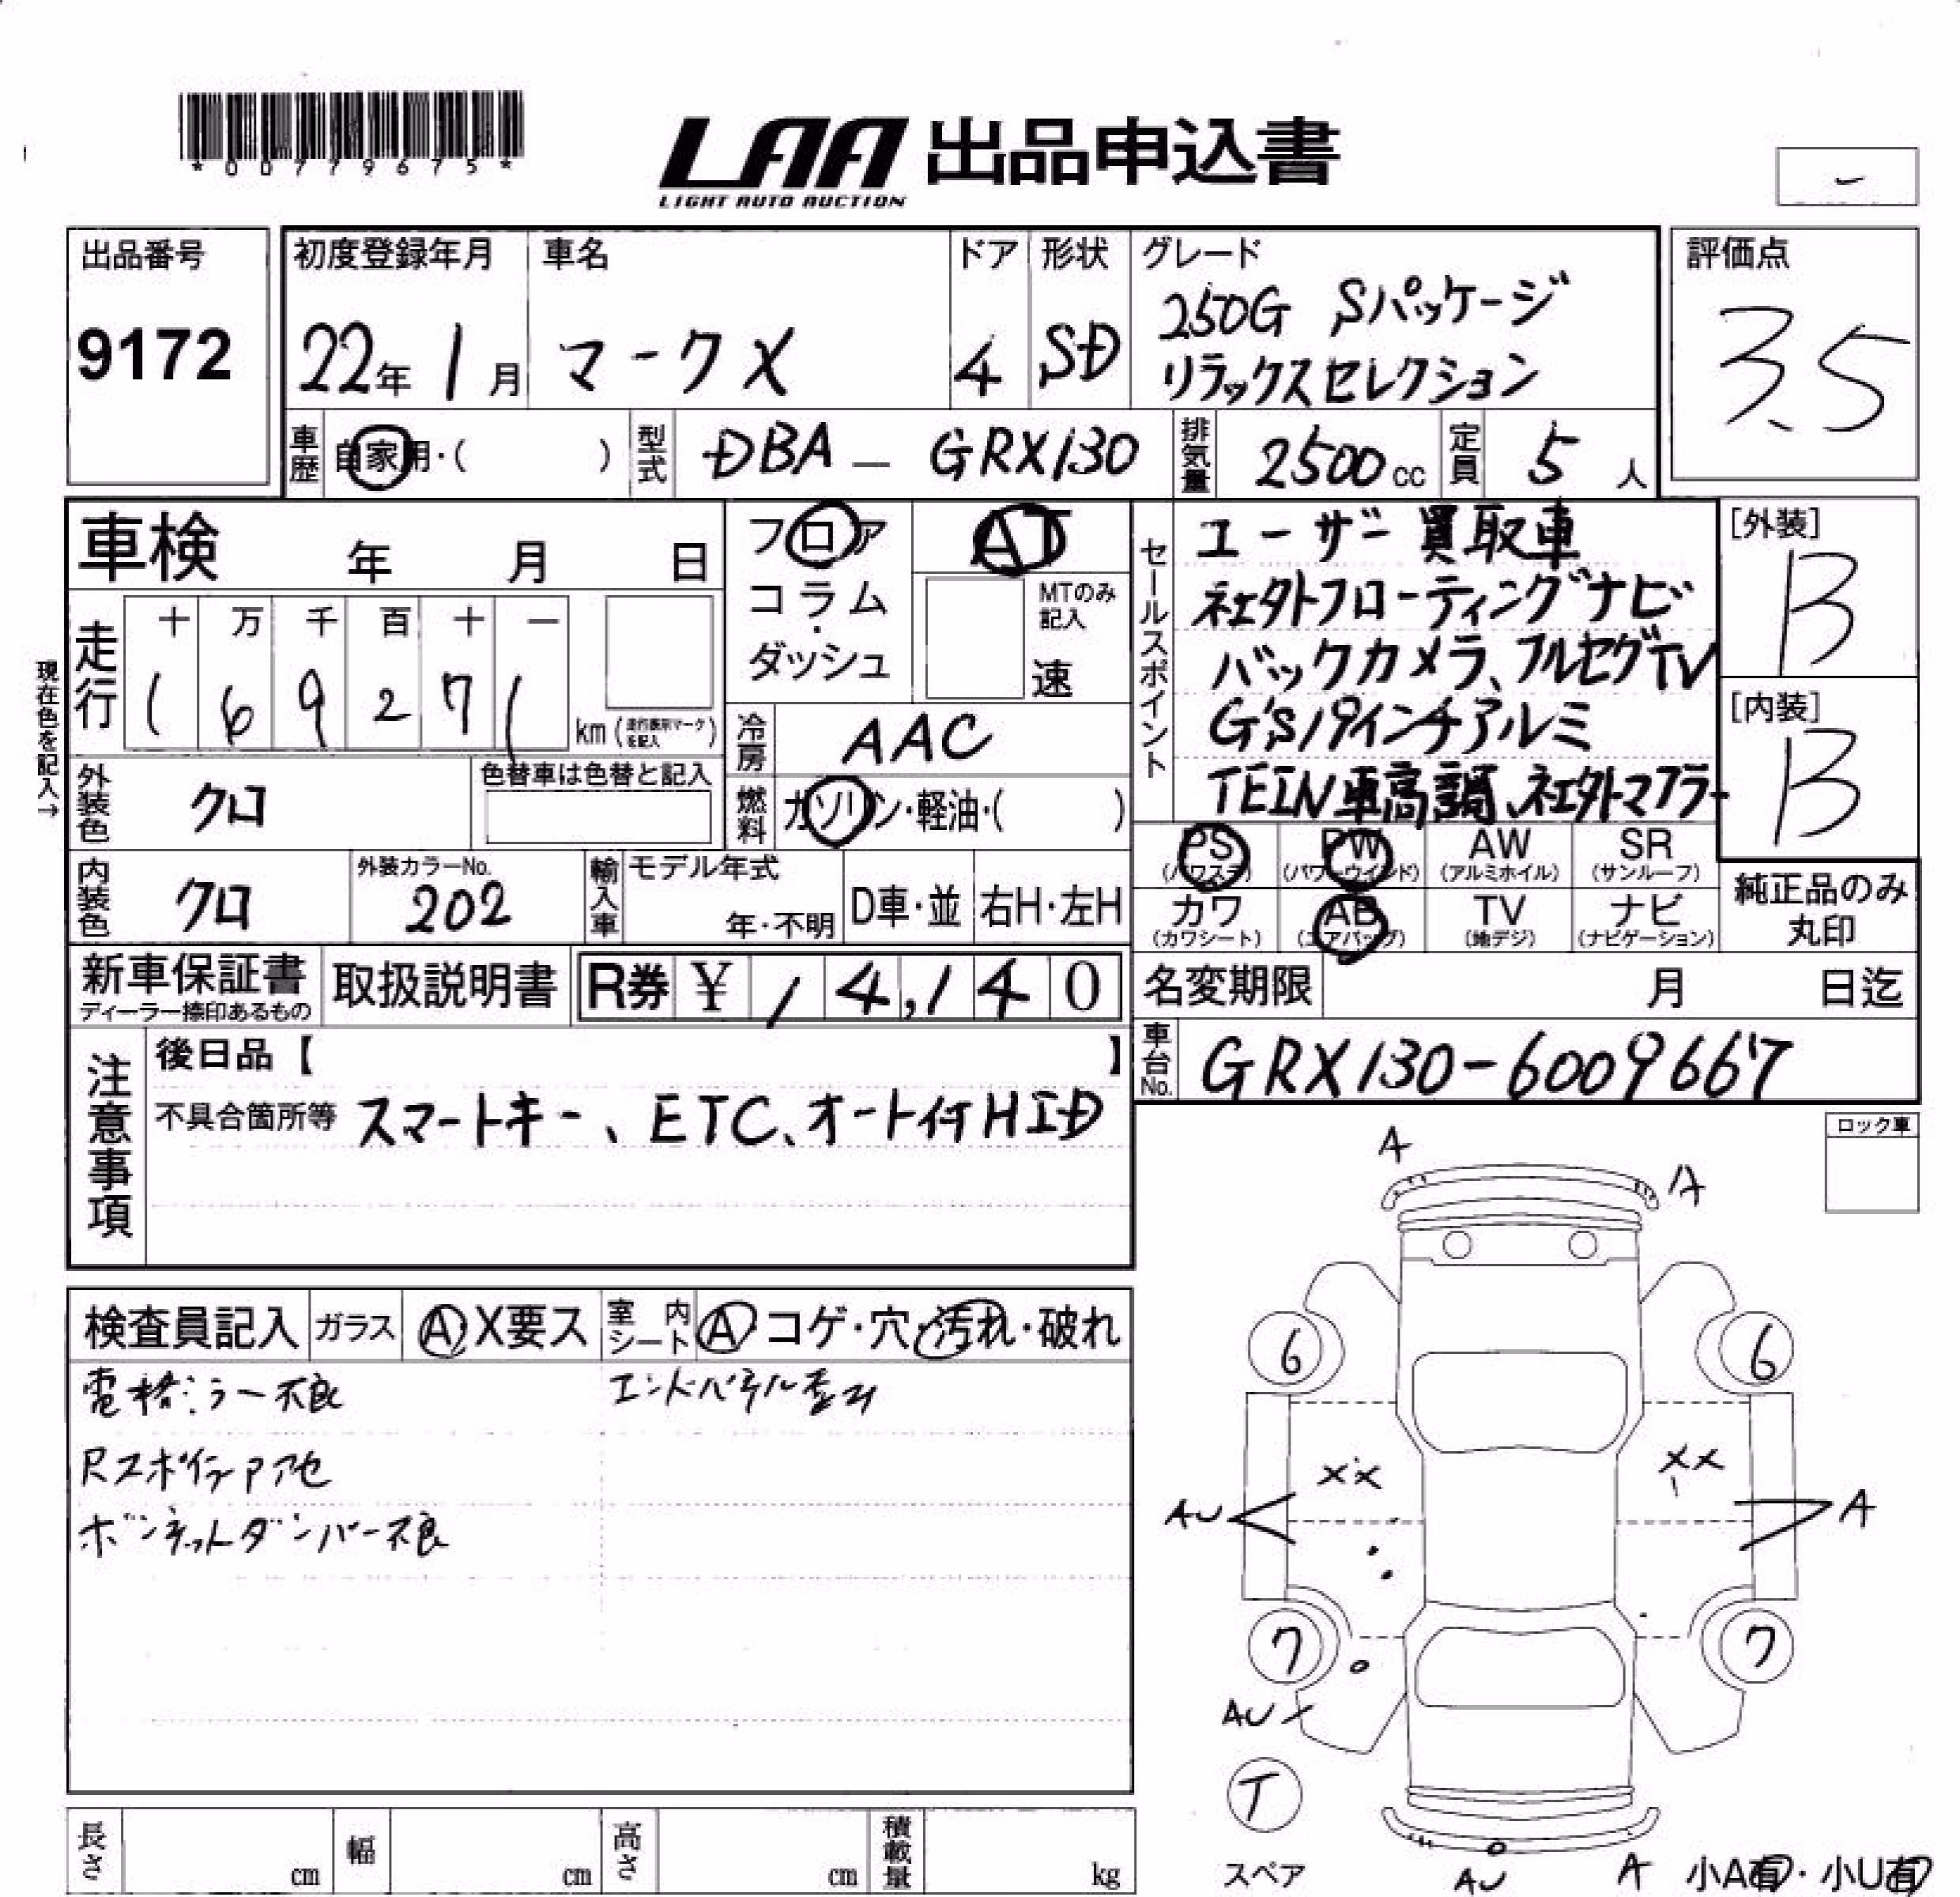 *00779675*
LAA 出品申込書
LIGHT AUTO AUCTION
出品番号
9172
初度登録年月
22年 1月
車名
マークX
ドア
4
形状
SD
グレード
250G Sパッケージ
リラックスセレクション
評価点
3.5
車歴 自家用・( )
型式 DBA - GRX130
排気量 2500cc
定員 5人
車検 年 月 日
走行 十 万 千 百 十 一
1 6 9 2 7 1 km (走行表示マークを記入)
現在色を記入→
フロア
コラム
・
ダッシュ
AT
MTのみ
記入
速
冷房 AAC
燃料 ガソリン・軽油・( )
外装色 クロ
色替車は色替と記入
内装色 クロ
外装カラーNo.
202
輸入車 モデル年式
年・不明
D車・並
右H・左H
セールスポイント
ユーザー買取車
社外フローティングナビ
バックカメラ、フルセグTV
G's19インチアルミ
TEIN車高調、社外マフラー
[外装]
B
[内装]
B
PS
(パワステ)
PW
(パワーウインド)
AW
(アルミホイル)
SR
(サンルーフ)
カワ
(カワシート)
AB
(エアバッグ)
TV
(地デジ)
ナビ
(ナビゲーション)
純正品のみ
丸印
新車保証書
ディーラー捺印あるもの
取扱説明書
R券 ¥ 14,140
名変期限 月 日迄
車台No. GRX130-6009667
注意事項
後日品【 】
不具合箇所等 スマートキー、ETC、オート付HID
ロック車
検査員記入
ガラス A・X要ス
室内シート A・コゲ・穴・汚れ・破れ
電格ミラー不良
エンドパネル歪み
Rスポイラーアセ
ボンネットダンパー不良
A
A
6
6
XX
XX
AU
A
7
7
AU
T
スペア
AU
A
小A有・小U有
長さ cm
幅 cm
高さ cm
積載量 kg